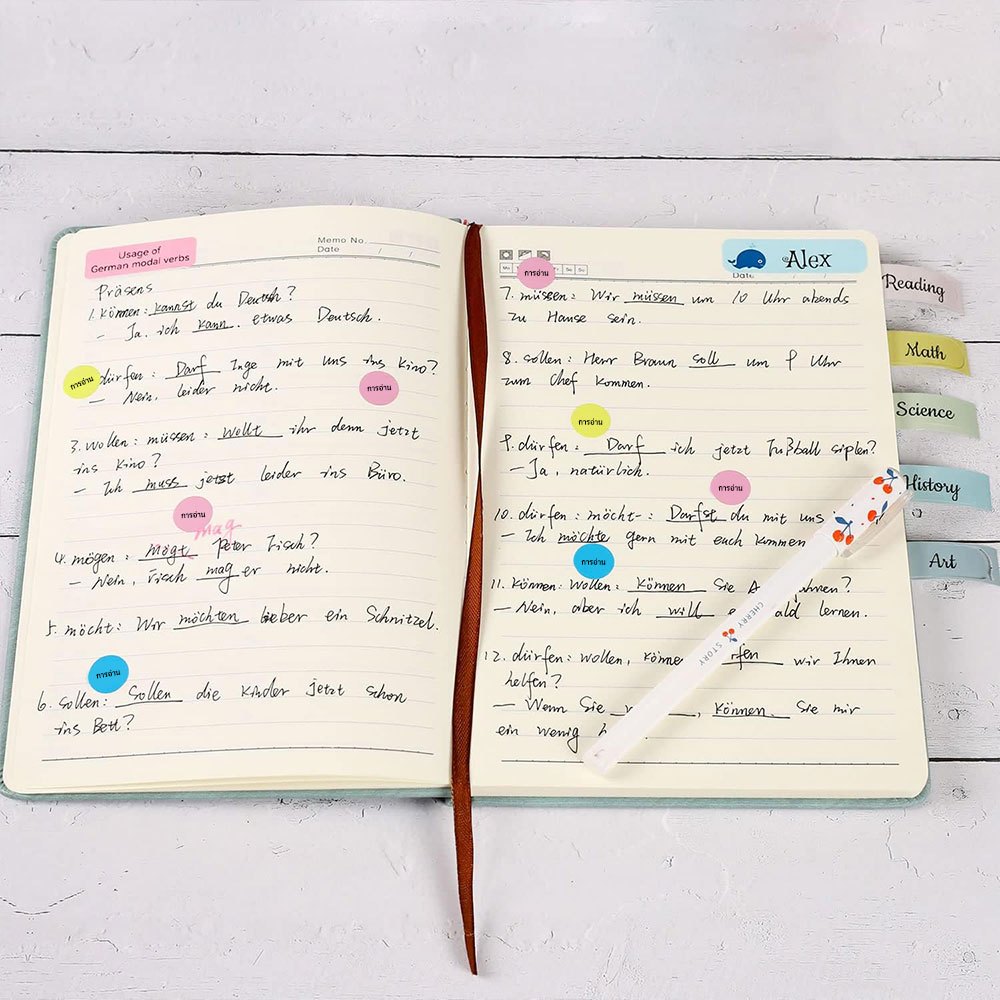 Usage of
German modal verbs
Memo No.
Date / /
Präsens
1. können: kannst du Deutsch?
- Ja, ich kann etwas Deutsch.
dürfen: Darf Inge mit uns ins Kino?
การอ่าน
- Nein, leider nicht.
การอ่าน
3. wollen: müssen: Wollt ihr denn jetzt
ins Kino?
- Ich muss jetzt leider ins Büro.
การอ่าน
mag
4. mögen: Mögt Peter Fisch?
- Nein, Fisch mag er nicht.
5. möcht: Wir möchten lieber ein Schnitzel.
การอ่าน
6. sollen: Sollen die Kinder jetzt schon
ins Bett?
Alex
Date
การอ่าน
7. müssen: Wir müssen um 10 Uhr abends
zu Hause sein.
8. sollen: Herr Braun soll um Uhr
zum Chef kommen.
การอ่าน
9. dürfen: Darf ich jetzt Fußball siplen?
- Ja, natürlich.
การอ่าน
10. dürfen: möcht-: Darfst du mit uns
- Ich möchte gern mit euch kommen
การอ่าน
11. können: wollen: Können Sie
- Nein, aber ich will ald lernen.
12. dürfen: wollen, könne rfen wir Ihnen
helfen?
- Wenn Sie , können Sie mir
ein wenig
CHERRY STORY
Reading
Math
Science
History
Art